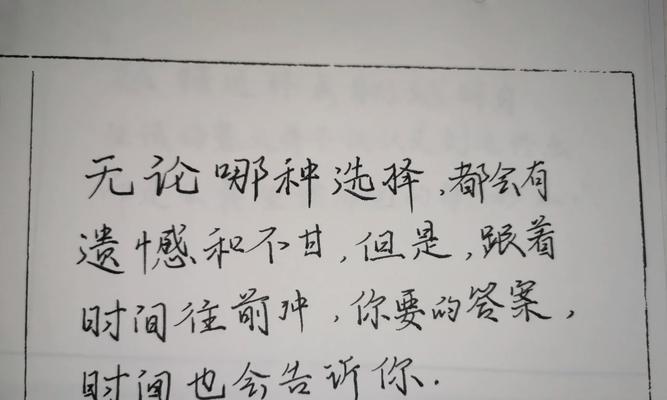 无论哪种选择,都会有
遗憾和不甘,但是,跟着
时间往前冲,你要的答案,
时间也会告诉你.